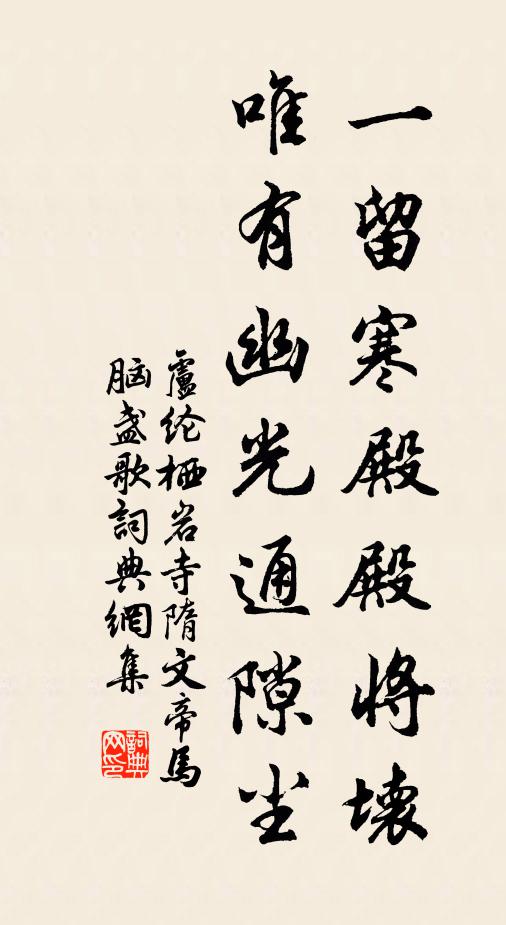 一留寒殿殿将壞
唯有幽光通隙尘
盧纶栖岩寺隋文帝馬
脑盏歌詞典網集
詞典网印